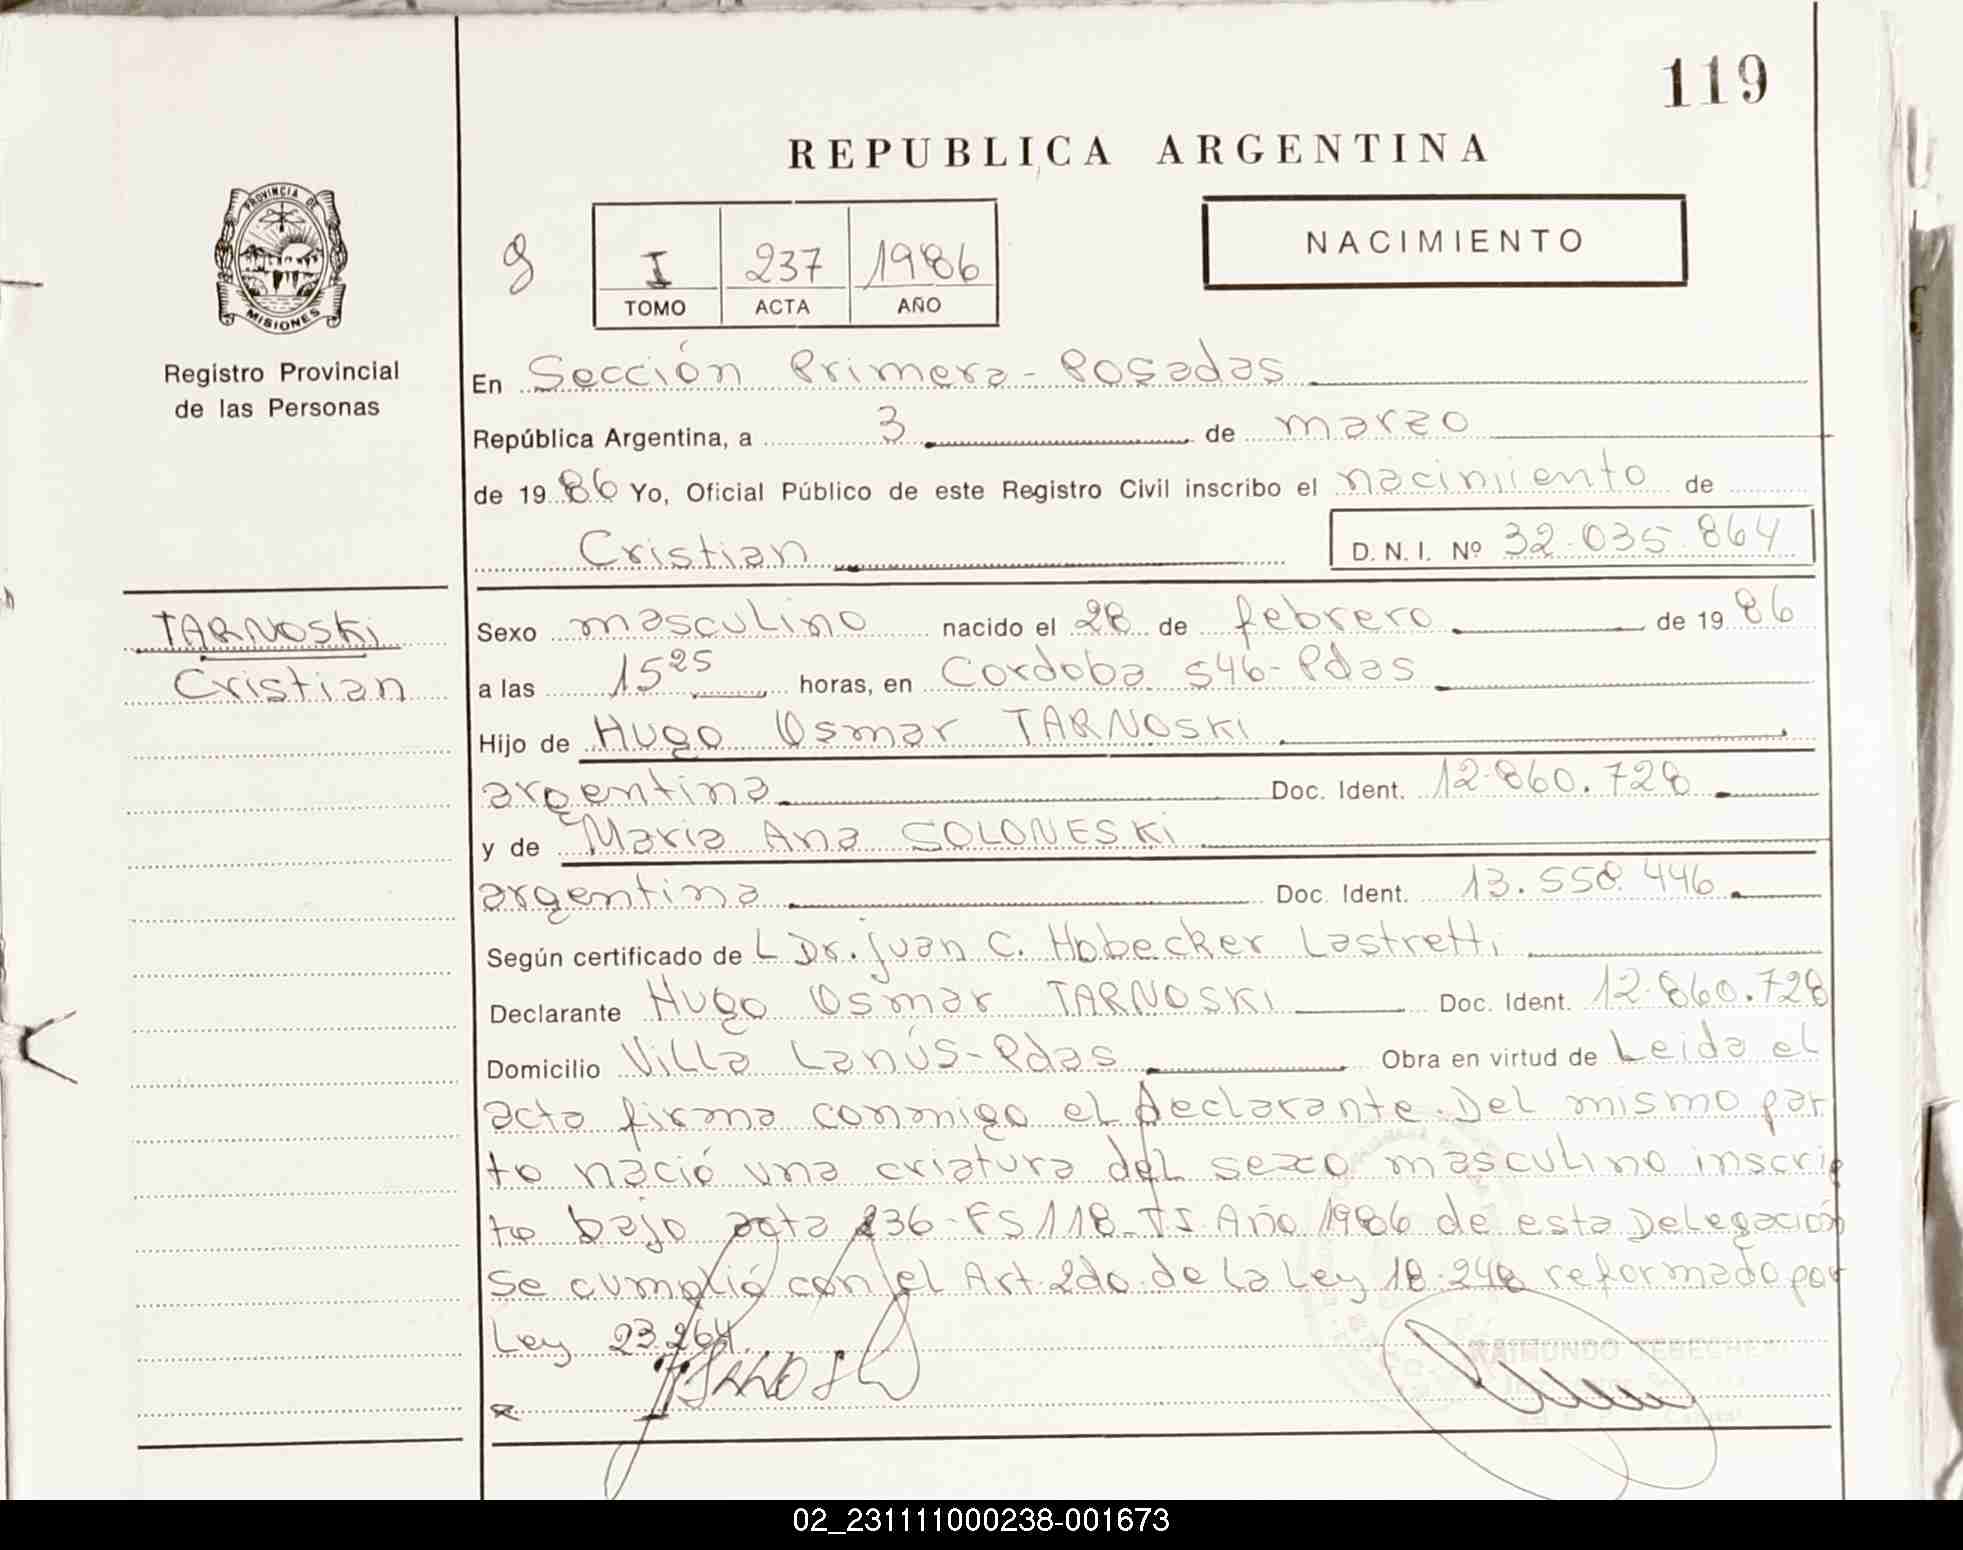 119
REPUBLICA ARGENTINA
PROVINCIA DE
MISIONES
Registro Provincial
de las Personas
I 237 1986
TOMO ACTA AÑO
NACIMIENTO
En Sección Primera - Posadas
República Argentina, a 3 de marzo
de 1986 Yo, Oficial Público de este Registro Civil inscribo el nacimiento de
Cristian D. N. I. Nº 32.035.864
TARNOSKi
Cristian
Sexo masculino nacido el 28 de febrero de 1986
a las 15 25 horas, en Cordoba 546 - Pdas
Hijo de Hugo Osmar TARNOSKi
argentina Doc. Ident. 12.860.728
y de Maria Ana SOLONESKi
argentina Doc. Ident. 13.558.446
Según certificado de L Dr. Juan C. Hobecker Lastretti
Declarante Hugo Osmar TARNOSKI Doc. Ident. 12.860.728
Domicilio Villa Lanús - Pdas Obra en virtud de Leida el
acta firma conmigo el declarante. Del mismo par
to nació una criatura del sexo masculino inscri
to bajo acta 236 - FS 118 - TI. Año 1986 de esta Delegación
se cumplió con el Art. 2do. de la Ley 18.248 reformado por
Ley 23.264.
RAIMUNDO
02_231111000238-001673